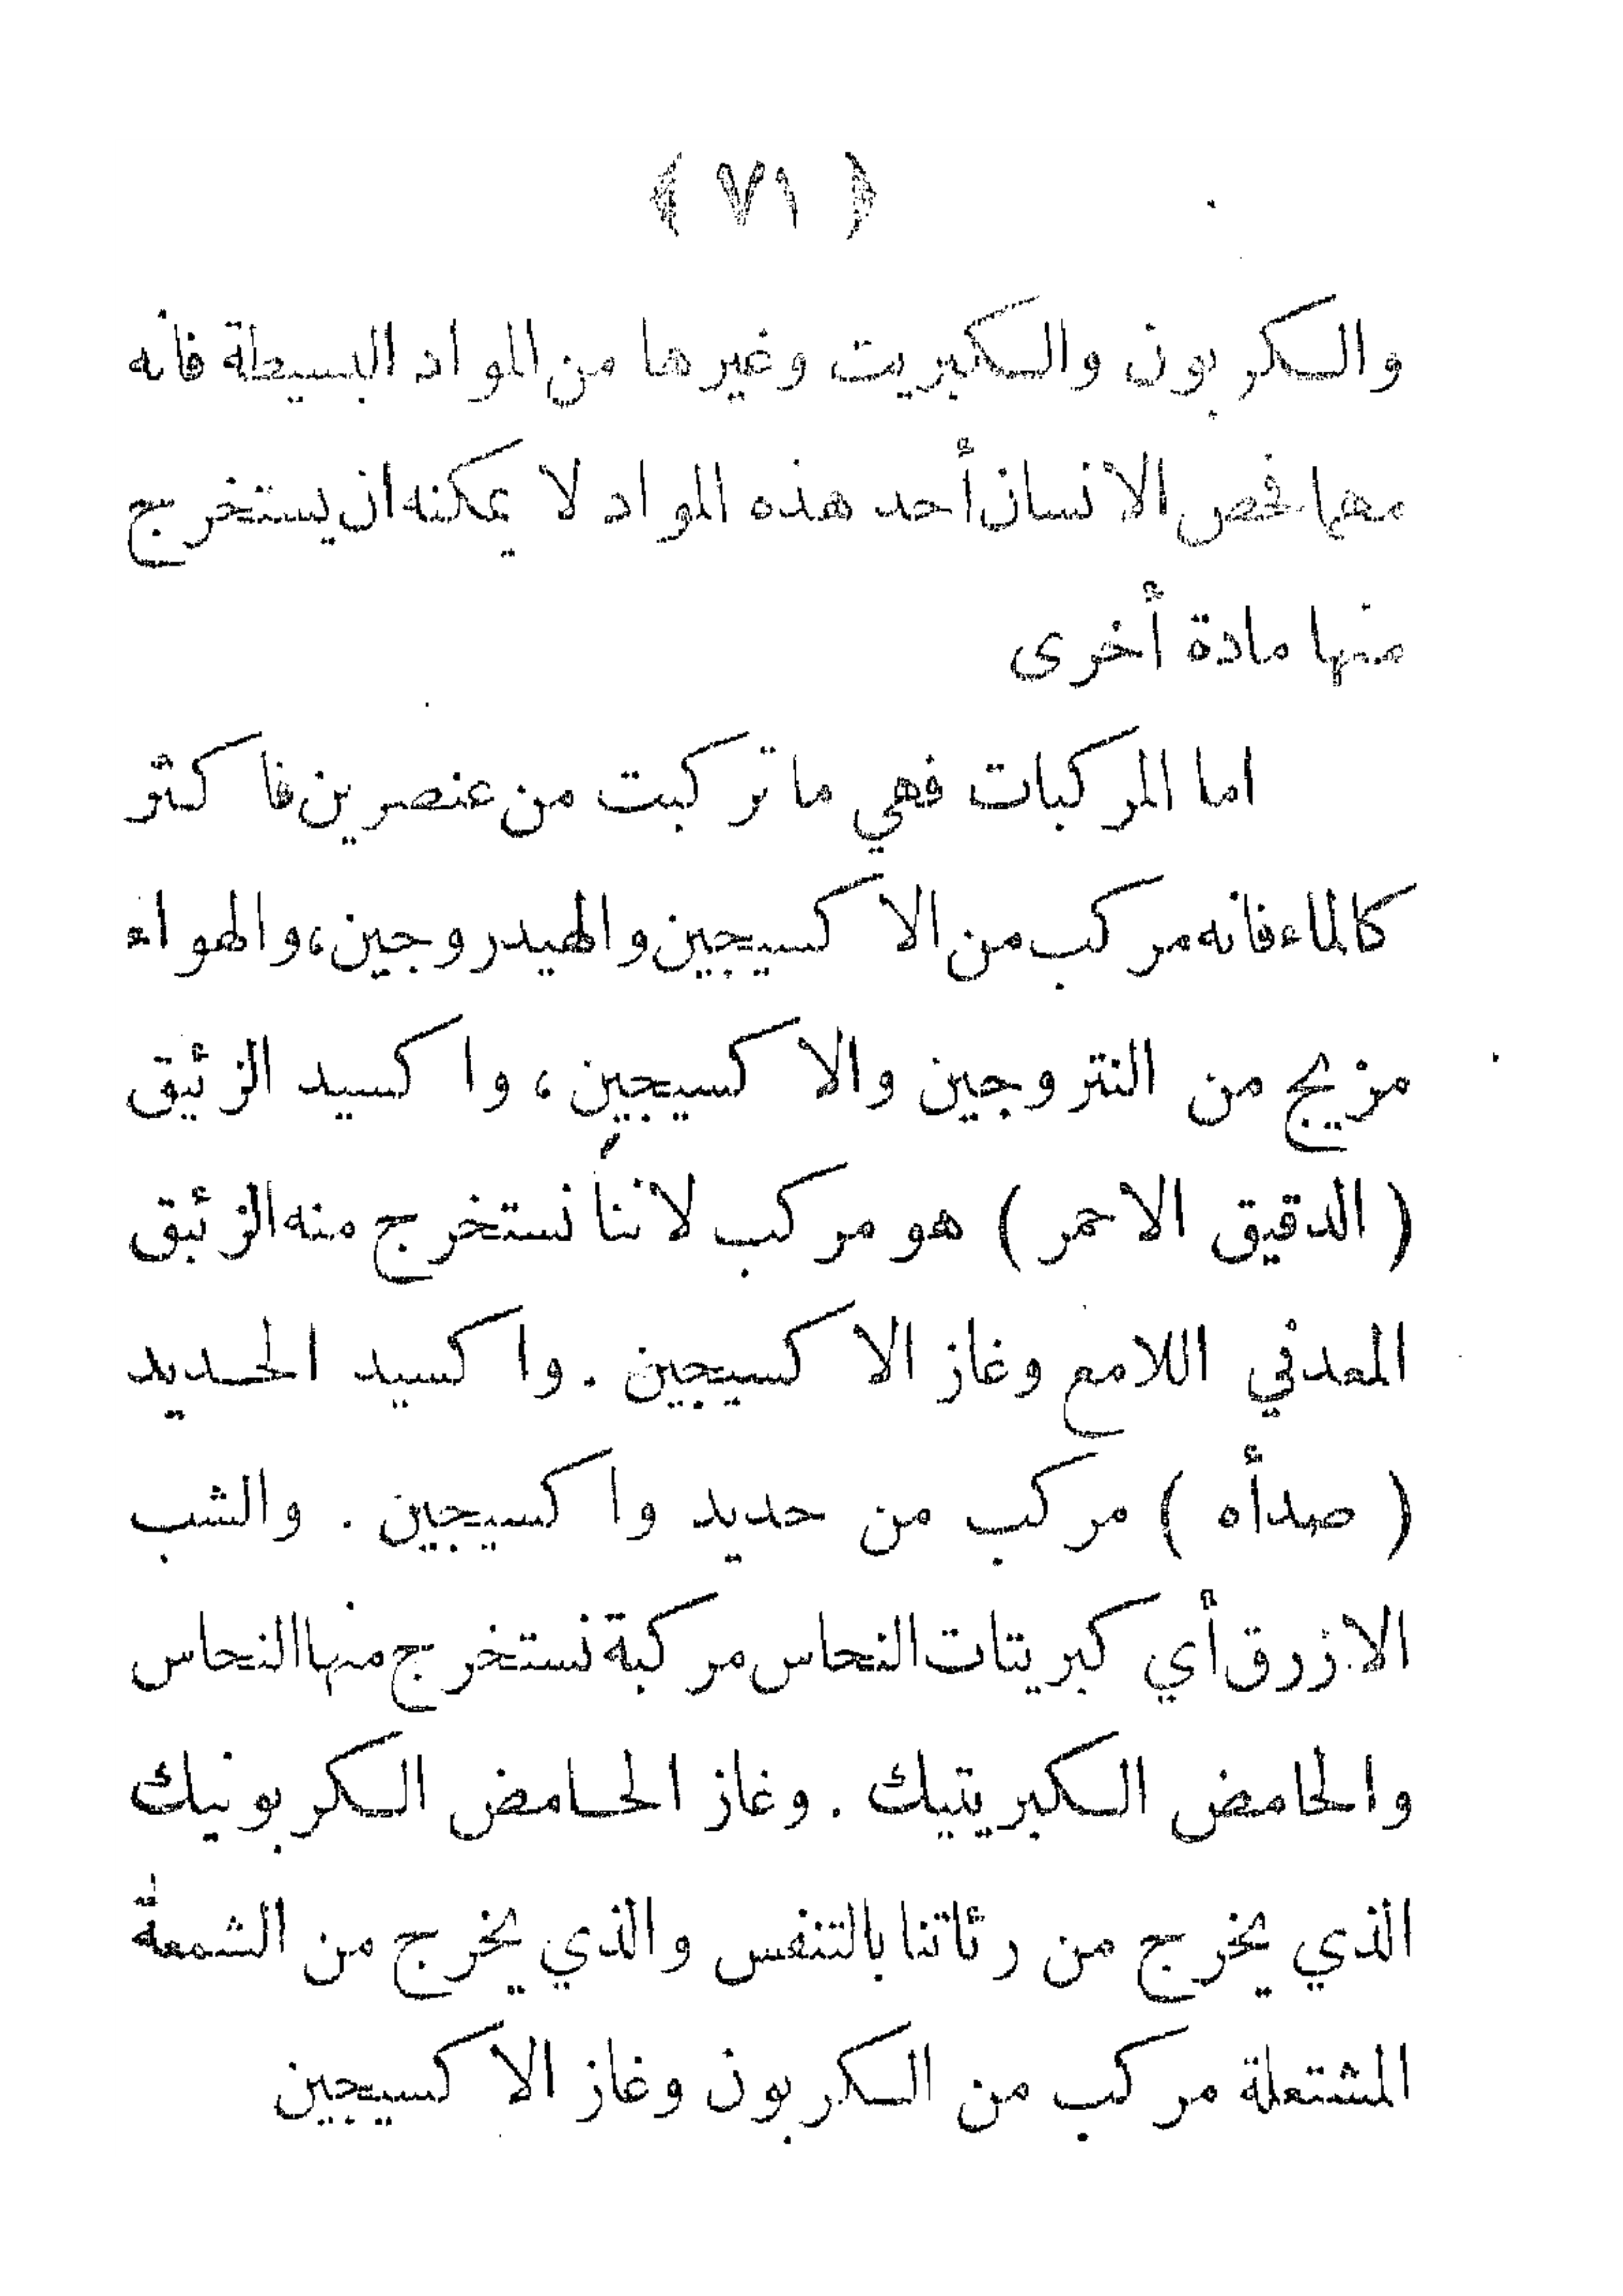 ﴿ ٧١ ﴾
والكربون والكبريت وغيرها من المواد البسيطة فانه
مهما فحص الانسان أحد هذه المواد لا يمكنه ان يستخرج
منها مادة أخرى
اما المركبات فهي ما تركبت من عنصرين فاكثر
كالماء فانه مركب من الاكسيجين والهيدروجين، والهواء
مزيج من النتروجين والاكسيجين، واكسيد الزئبق
( الدقيق الاحمر ) هو مركب لاننا نستخرج منه الزئبق
المعدني اللامع وغاز الاكسيجين . واكسيد الحديد
( صدأه ) مركب من حديد واكسيجين . والشب
الازرق أي كبريتات النحاس مركبة نستخرج منها النحاس
والحامض الكبريتيك . وغاز الحامض الكربونيك
الذي يخرج من رئاتنا بالتنفس والذي يخرج من الشمعة
المشتعلة مركب من الكربون وغاز الاكسيجين